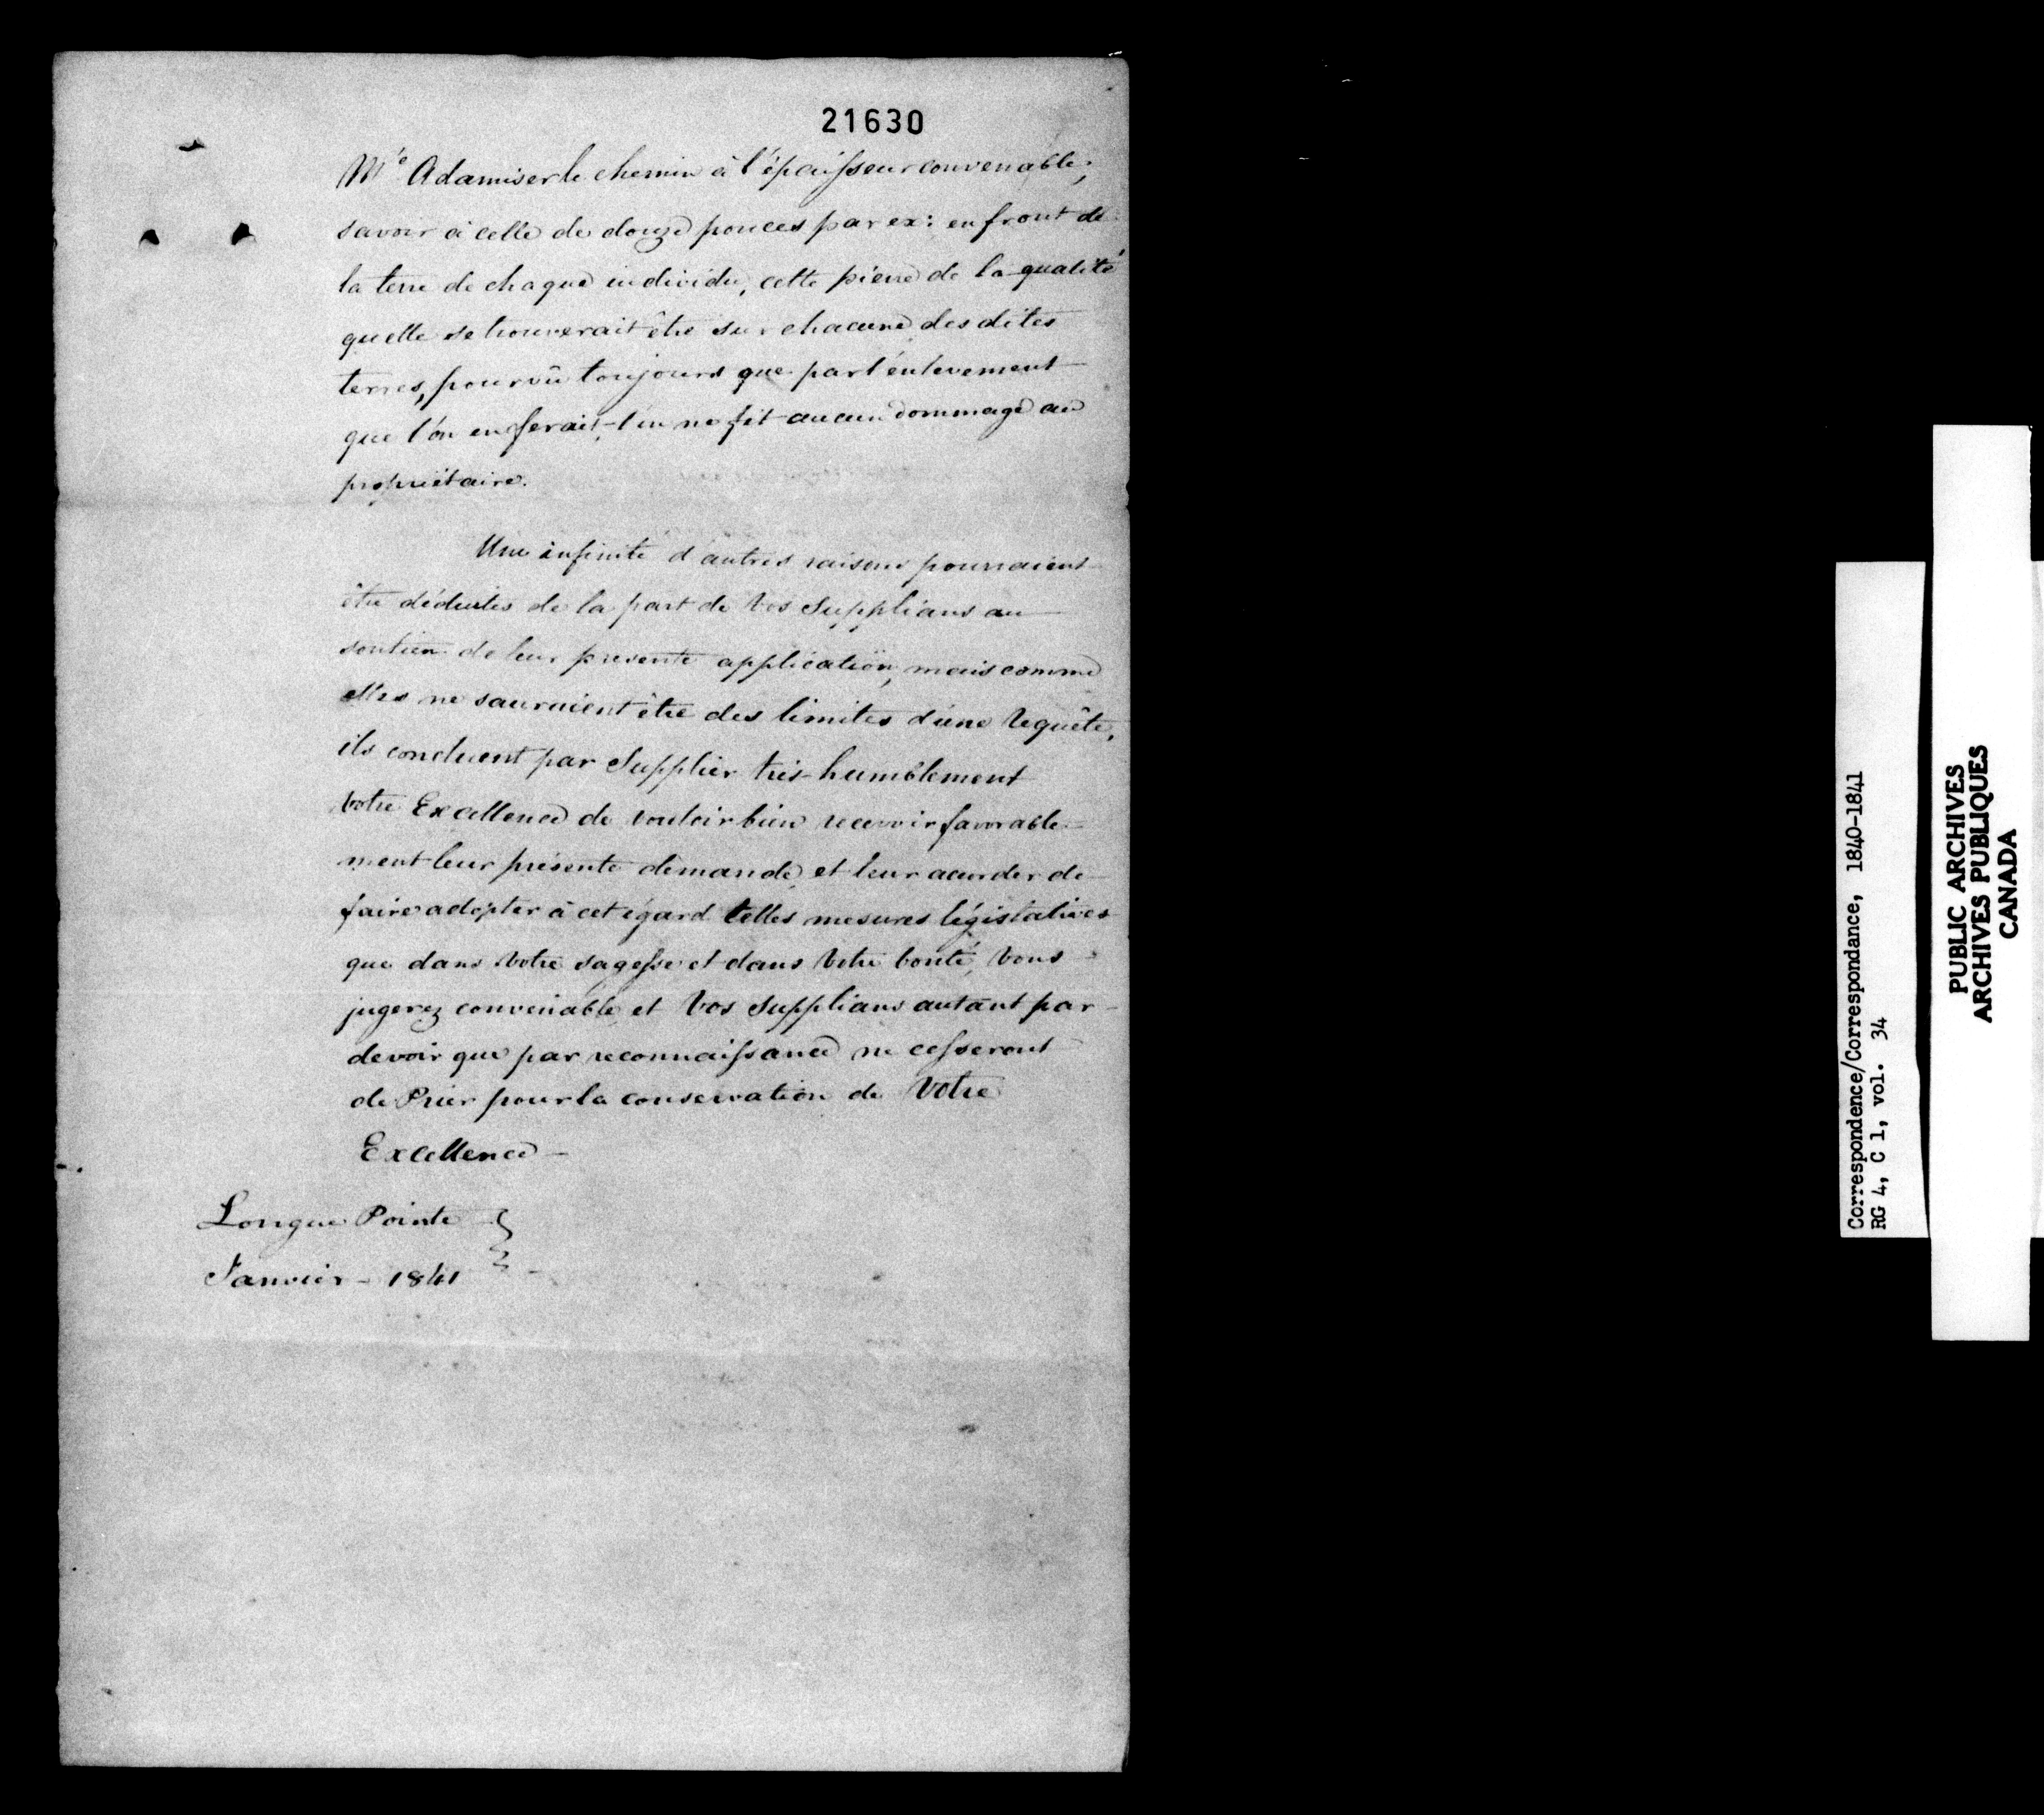 21630
Mc Adamiser le chemin à l'épaisseur convenable,
savoir à celle de douze pouces par ex: en front de
la terre de chaque individu, cette pierre de la qualité
quelle se trouverait être sur chacune des dites
terres, pourvû toujours que par l'énlevement
que l'on en ferait, l'on ne fit aucun dommage au
propriétaire.
Une infinité d'autres raisons pourraient
être déduites de la part de Vos Supplians au
soutien de leur présente application, mais comme
elles ne sauraient être des limites d'une Requête,
ils concluent par Supplier très-humblement
Votre Excellence de vouloir bien recevoir favorable-
ment leur présente demande, et leur accorder de
faire adopter à cet égard telles mesures législatives
que dans Votre sagesse et dans Votre bonté, Vous
jugerez convenable et Vos Supplians autant par
devoir que par reconnaissance ne cesseront
de Prier pour la conservation de Votre
Excellence -
Longue Pointe
Janvier - 1841
Correspondence/Correspondance, 1840-1841
RG 4, C 1, vol. 34
PUBLIC ARCHIVES
ARCHIVES PUBLIQUES
CANADA